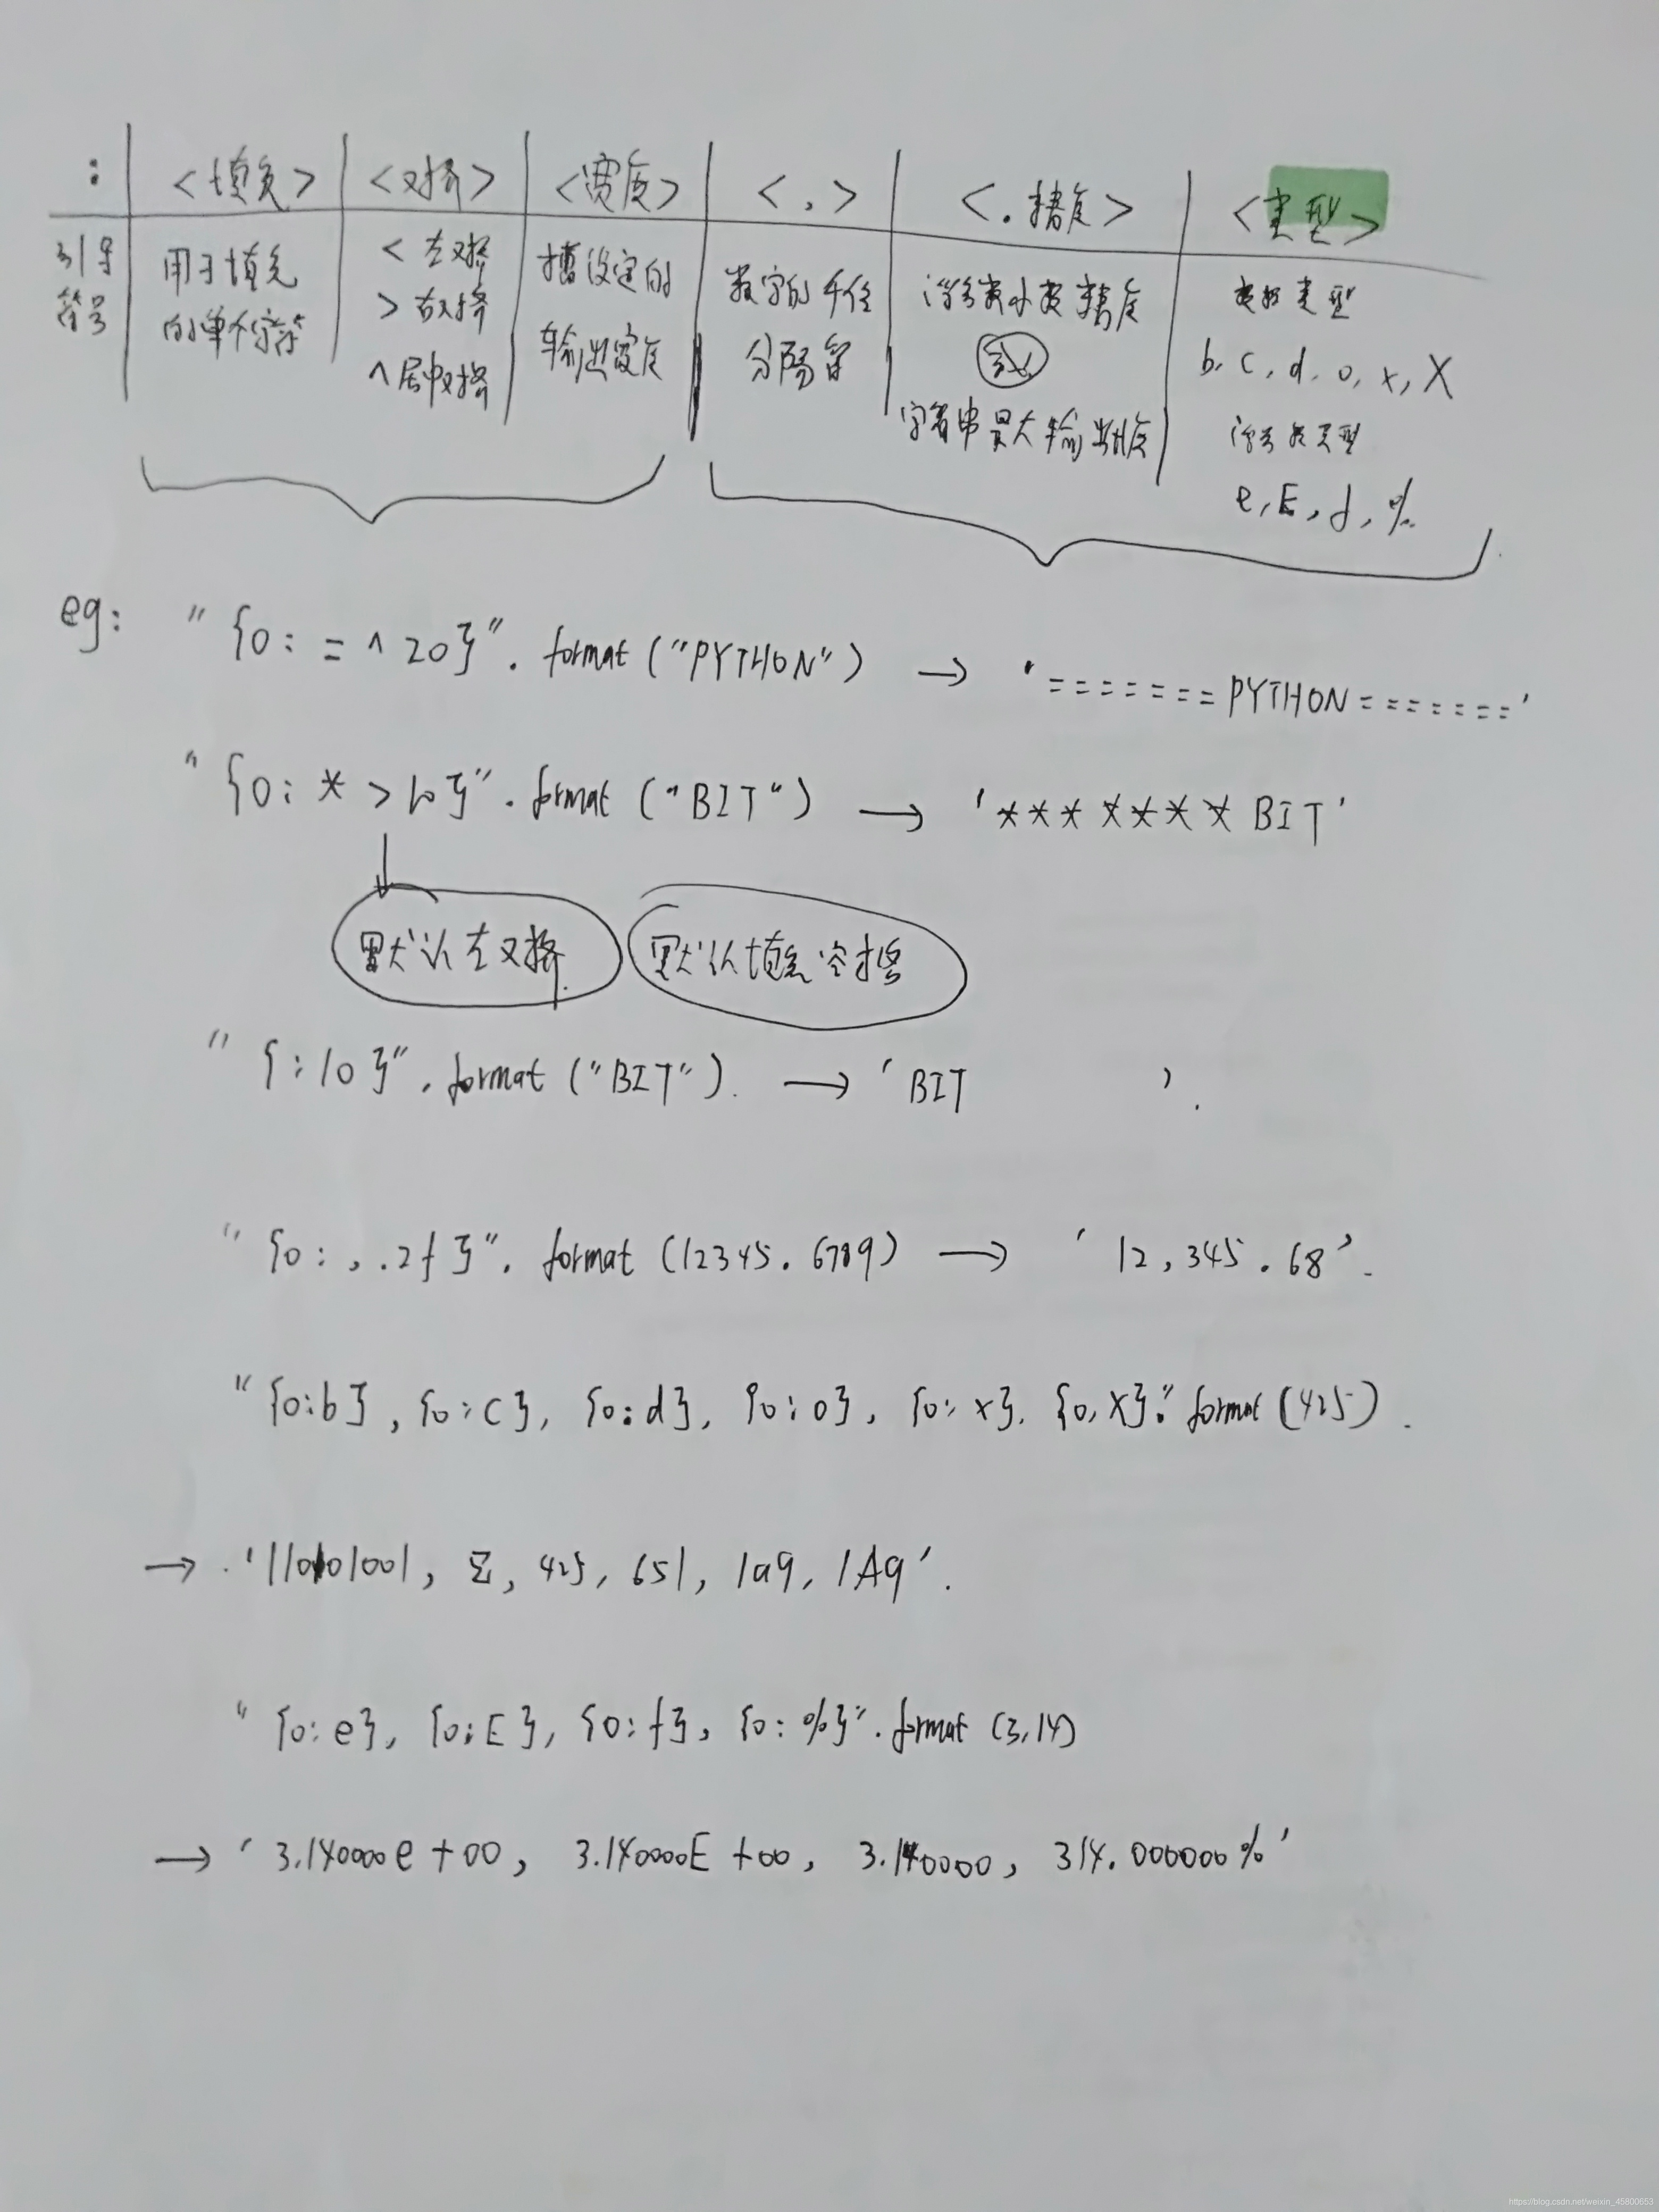 : <填充> <对齐> <宽度> <,> <.精度> <类型>
引导 用于填充 < 左对齐 槽设定的 数字的千位 浮点数小数精度 整数类型
符号 的单个字符 > 右对齐 输出宽度 分隔符 或 b, c, d, o, x, X
^ 居中对齐 字符串最大输出长度 浮点数类型
e, E, f, %.
eg: "{0:=^20}".format("PYTHON") → '=======PYTHON======='
"{0:*>10}".format("BIT") → '*******BIT'
默认左对齐 默认填充空格
"{:10}".format("BIT"). → 'BIT '.
"{0:,.2f}".format(12345.6789) → '12,345.68'.
"{0:b}, {0:c}, {0:d}, {0:o}, {0:x}, {0,X}".format(425).
→ '110101001, Σ, 425, 651, 1a9, 1A9'.
"{0:e}, {0:E}, {0:f}, {0:%}".format(3.14)
→ '3.140000e+00, 3.140000E+00, 3.140000, 314.000000%'
https://blog.csdn.net/weixin_45800653